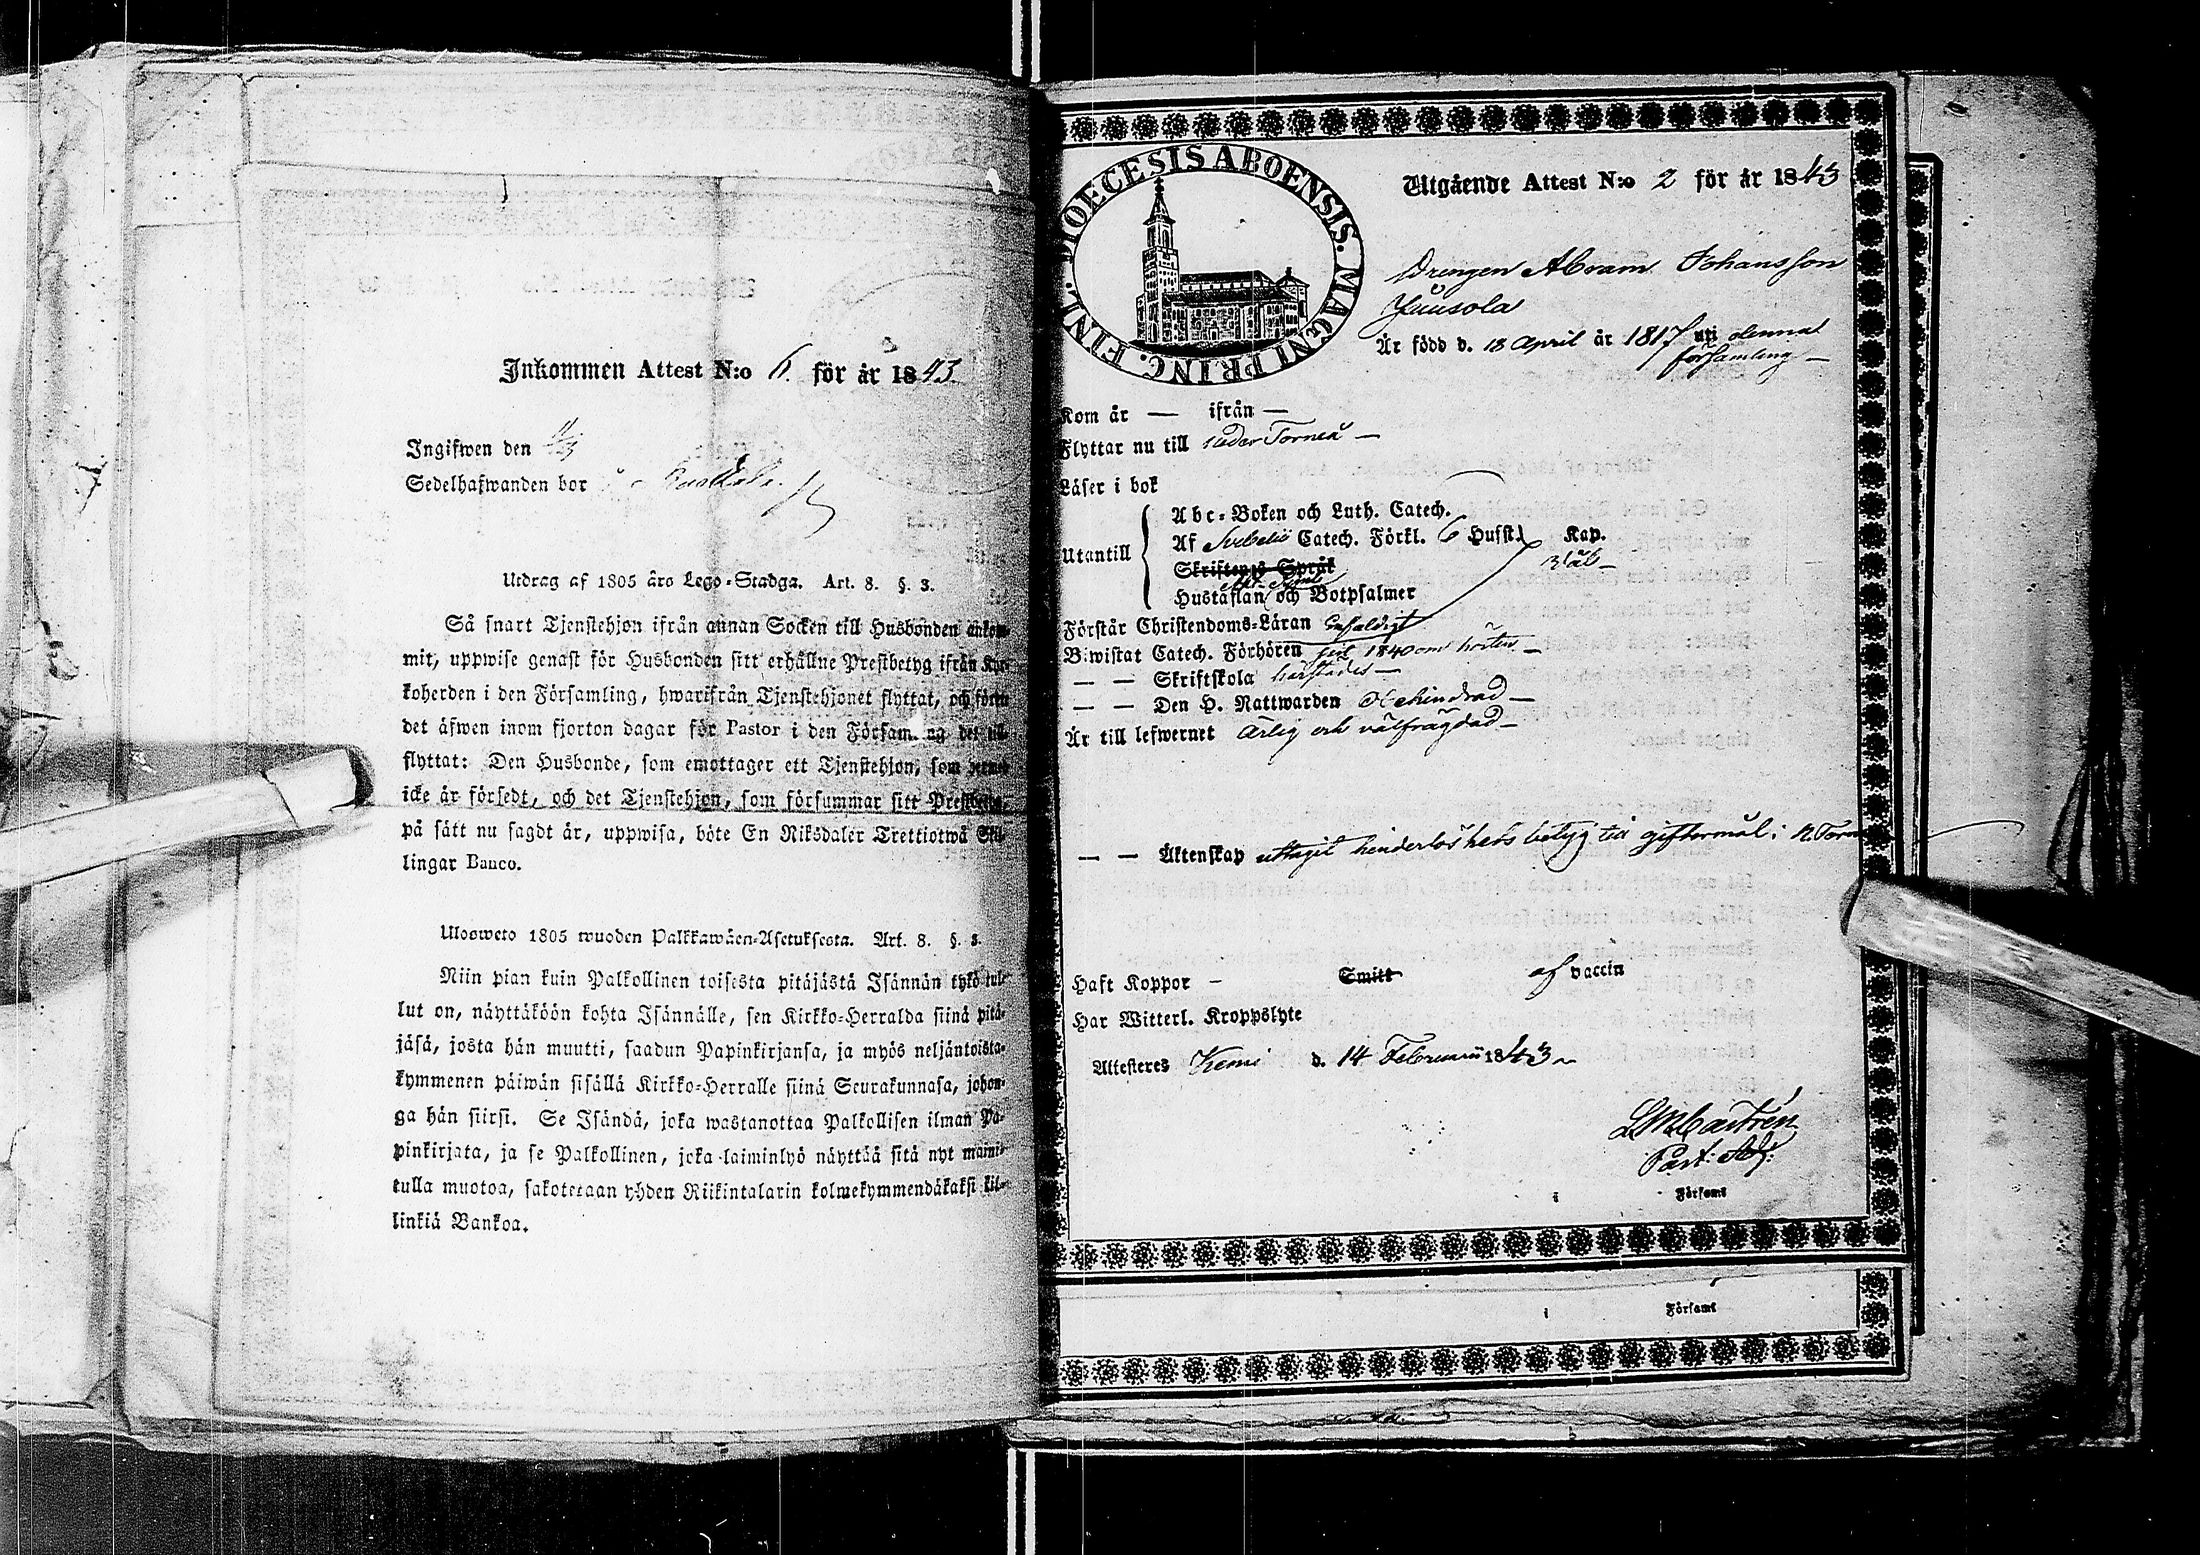 Inkommen Attest N:o 6. för år 1843.
Ingifwen den
Sedelhafwanden bor i
Utdrag af 1805 års Lego-Stadga. Art. 8. §. 3.
Så snart Tjenstehjon ifrån annan Socken till Husbonden ankom-
mit, uppwise genast för Husbonden sitt erhållne Prestbetyg ifrån Kyr-
koherden i den Församling, hwarifrån Tjenstehjonet flyttat, och förete
det äfwen inom fjorton dagar för Pastor i den Församling det till-
flyttat: Den Husbonde, som emottager ett Tjenstehjon, som dermed
icke är försedt, och det Tjenstehjon, som försummar sitt Prestbetyg,
på sätt nu sagdt är, uppwisa, böte En Riksdaler Trettiotwå Skil-
lingar Banco.
Ulosweto 1805 wuoden Palkkawäen-Asetuksesta. Art. 8. §. 3.
Niin pian kuin Palkollinen toisesta pitäjästä Isännän tykö tul-
lut on, näyttäköön kohta Isännälle, sen Kirkko-Herralda siinä pitä-
jäsä, josta hän muutti, saadun Papinkirjansa, ja myös neljäntoista-
kymmenen päiwän sisällä Kirkko-Herralle siinä Seurakunnasa, johon-
ga hän siirsi. Se Isändä, joka wastanottaa Palkollisen ilman Pa-
pinkirjata, ja se Palkollinen, joka laiminlyö näyttää sitä nyt maini-
tulla muotoa, sakotetaan yhden Riikintalarin kolmekymmendäkaksi kil-
linkiä Bankoa.
DIOECESIS ABOENSIS. MAGNI PRINC. FINL.
Utgående Attest N:o 2 för år 1843
Drengen Abram Johansson
Juusola
Är född d. 18 April år 1817 uti denna
församling —
Kom år — ifrån —
Flyttar nu till Neder Torneå —
Läser i bok
Utantill
Abc-Boken och Luth. Catech.
Af Svebelii Catech. Förkl. 6 Hufst. Kap.
Skriftenes Språk
Hustaflan och Botpsalmer
Förstår Christendoms-Läran enfaldigt
Biwistat Catech. Förhören 1840 om hösten —
— — Skriftskola härstädes —
— — Den H. Nattwarden Ohindrad —
Är till lefwernet ärlig och välfrägdad —
— — Äktenskap uttagit hinderslöshets betyg till giftermål i N. Torneå
Haft Koppor — Smitt af vaccin
Har Witterl. Kroppslyte
Attesteres Kemi d. 14 Februarii 1843
Castrén
Past: Adj:
i Församl
i Församl